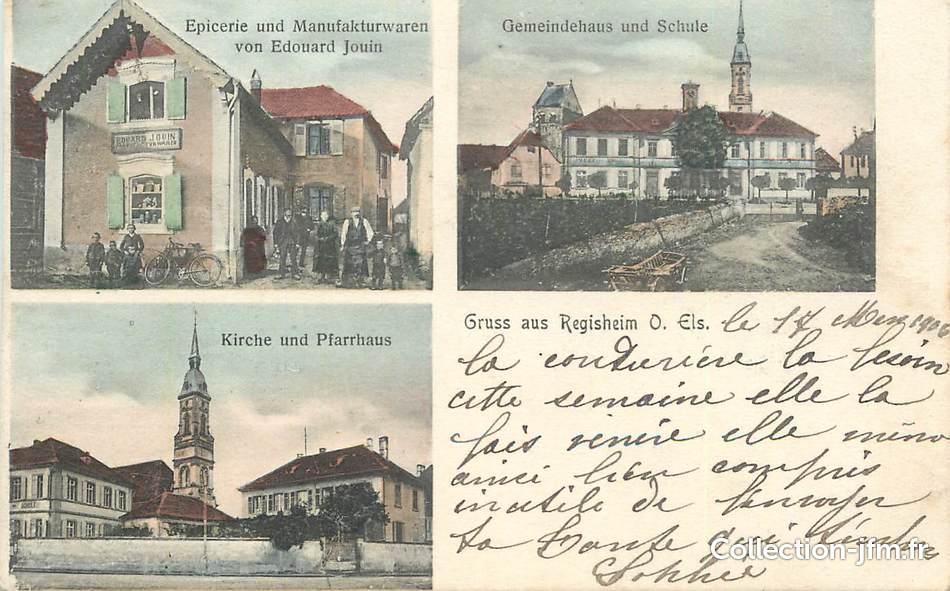 Epicerie und Manufakturwaren
von Edouard Jouin
EDOUARD JOUIN
Gemeindehaus und Schule
Kirche und Pfarrhaus
Gruss aus Regisheim O. Els. le 17
la couturière la besoin
cette semaine elle la
fais venire elle même
ainci bien compris
inutile de
ta Tante qui
Sophie
Collection-jfm.fr